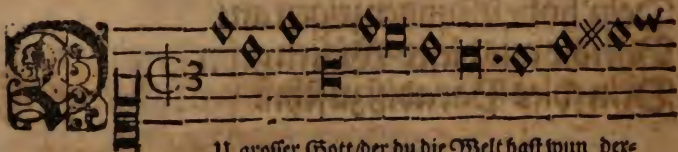 NU grosser Gott/der du die Welt hast wun, der=